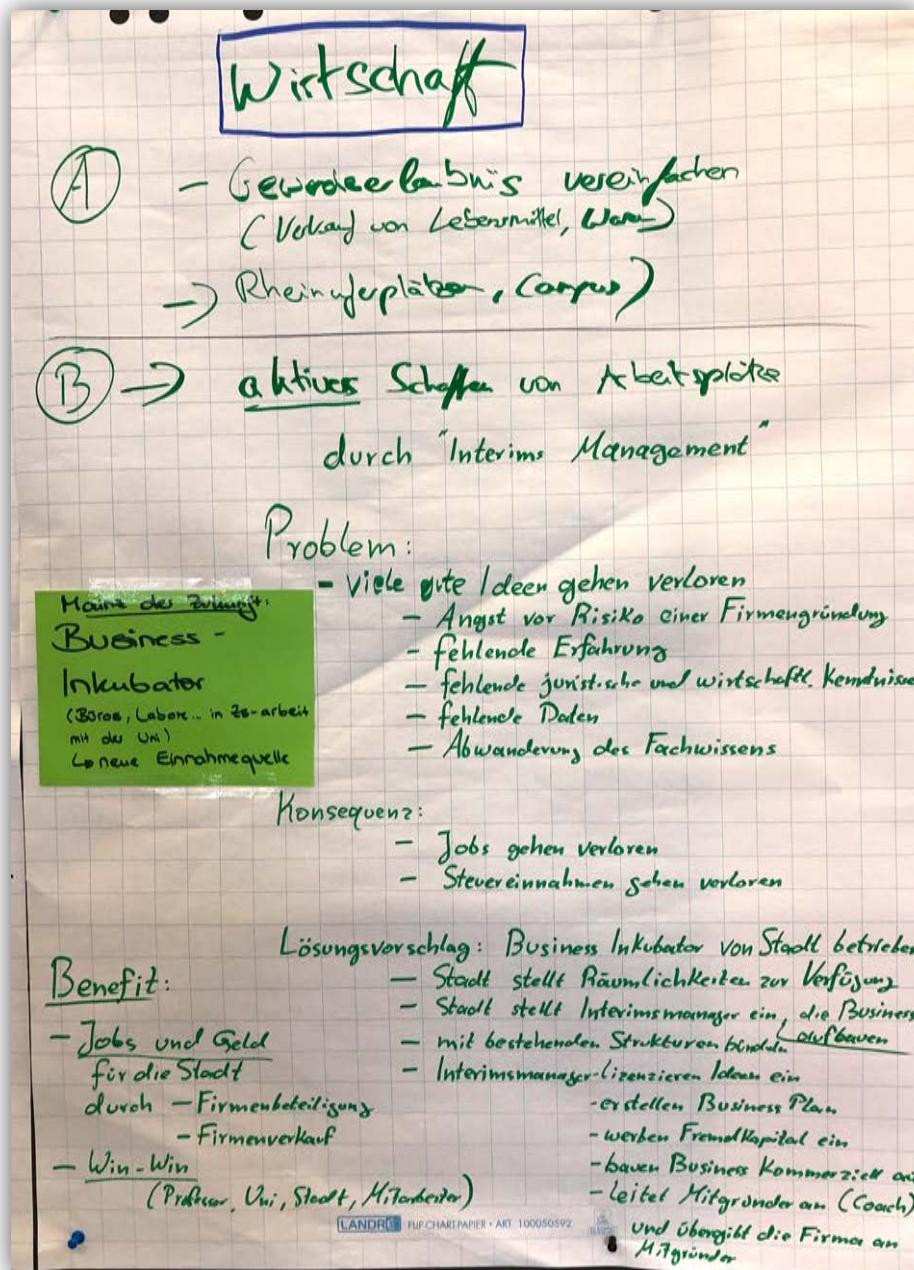 Wirtschaft
A
- Gewerbeerlaubnis vereinfachen
(Verkauf von Lebensmittel, Waren)
-> Rheinuferplätzen, Campus)
B -> aktives Schaffen von Arbeitsplätze
durch "Interims Management"
Problem:
- viele gute Ideen gehen verloren
- Angst vor Risiko einer Firmengründung
- fehlende Erfahrung
- fehlende juristische und wirtschaftl. Kenntnisse
- fehlende Daten
- Abwanderung des Fachwissens
Mainz der Zukunft:
Business -
Inkubator
(Büros, Labore... in Zs-arbeit
mit der Uni)
↳ neue Einnahmequelle
Konsequenz:
- Jobs gehen verloren
- Steuereinnahmen gehen verloren
Lösungsvorschlag: Business Inkubator von Stadt betrieben
- Stadt stellt Räumlichkeiten zur Verfügung
- Stadt stellt Interimsmanager ein, die Business
aufbauen
- mit bestehenden Strukturen bündeln
- Interimsmanager lizenzieren Ideen ein
- erstellen Business Plan
- werben Fremdkapital ein
- bauen Business Kommerziell auf
- leitet Mitgründer an (Coach)
und übergibt die Firma an
Mitgründer
Benefit:
- Jobs und Geld
für die Stadt
durch - Firmenbeteiligung
- Firmenverkauf
- Win-Win
(Professor, Uni, Stadt, Mitarbeiter)
LANDRÉ FLIP-CHART-PAPIER • ART. 100050592